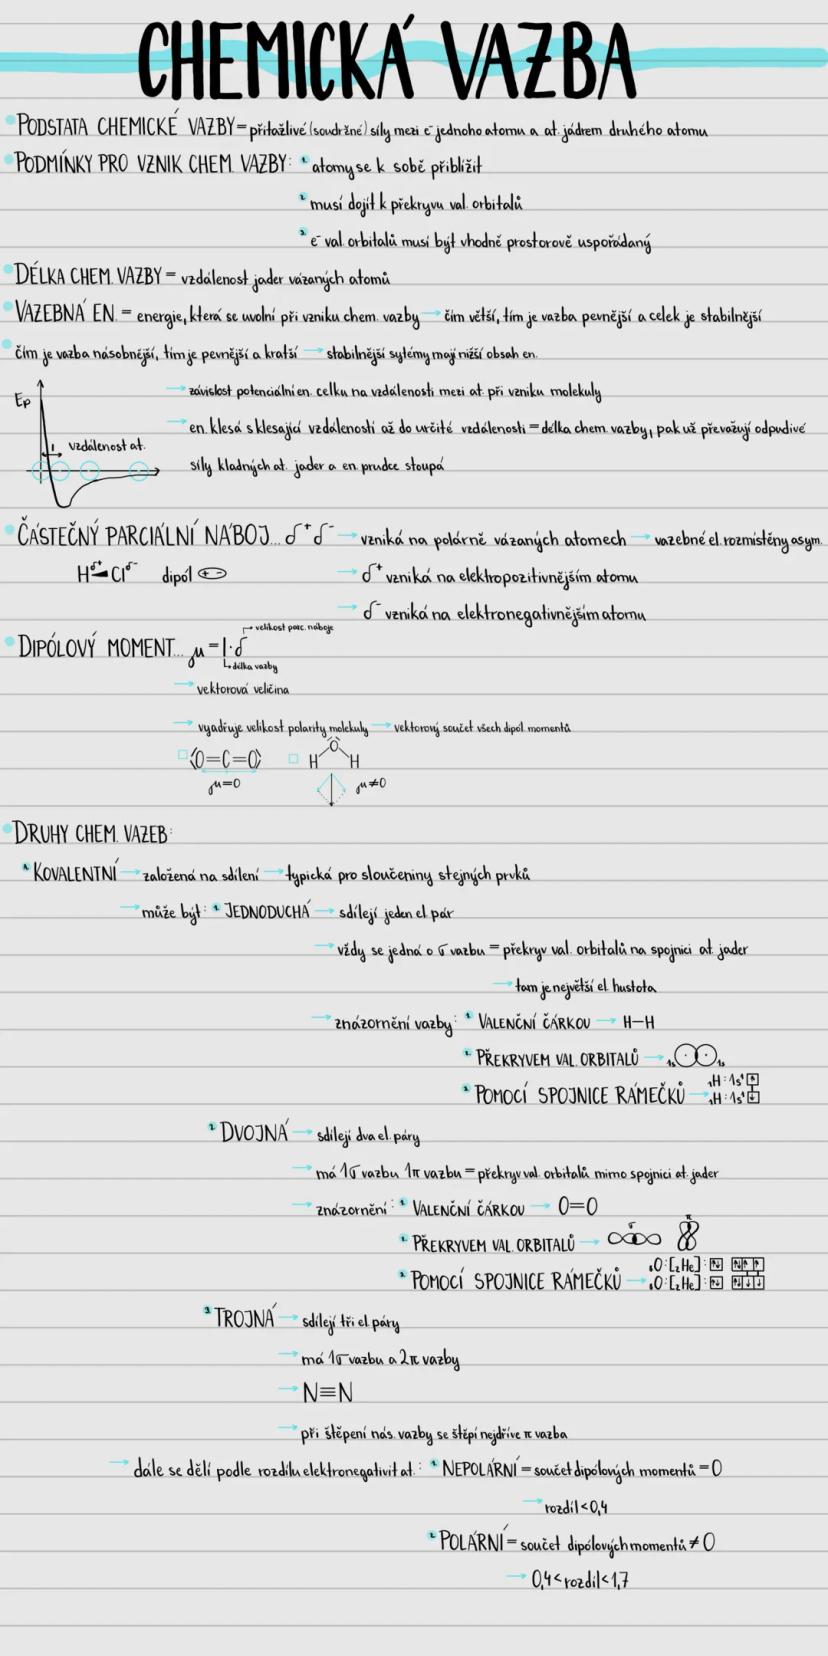 CHEMICKÁ VAZBA
PODSTATA CHEMICKÉ VAZBY = přitažlivé (soudržné) síly mezi e⁻ jednoho atomu a at. jádrem druhého atomu
PODMÍNKY PRO VZNIK CHEM. VAZBY: 1. atomy se k sobě přiblížit
2. musí dojít k překryvu val. orbitalů
3. e⁻ val. orbitalů musí být vhodně prostorově uspořádaný
DÉLKA CHEM. VAZBY = vzdálenost jader vázaných atomů
VAZEBNÁ EN. = energie, která se uvolní při vzniku chem. vazby → čím větší, tím je vazba pevnější a celek je stabilnější
čím je vazba násobnější, tím je pevnější a kratší → stabilnější sytémy mají nižší obsah en.
→ závislost potenciální en. celku na vzdálenosti mezi at. při vzniku molekuly
Ep
→ en. klesá s klesající vzdáleností až do určité vzdálenosti = délka chem. vazby, pak už převažují odpudivé
l vzdálenost at.
síly kladných at. jader a en. prudce stoupá
ČÁSTEČNÝ PARCIÁLNÍ NÁBOJ... δ⁺ δ⁻ → vzniká na polárně vázaných atomech → vazebné el. rozmístěny asym.
H^δ+ Cl^δ- dipól + - → δ⁺ vzniká na elektropozitivnějším atomu
→ δ⁻ vzniká na elektronegativnějším atomu
→ velikost parc. náboje
DIPÓLOVÝ MOMENT... μ = l·δ
↳ délka vazby
→ vektorová veličina
→ vyadřuje velikost polarity molekuly → vektorový součet všech dipól. momentů
O=C=O H O H
μ=0 μ≠0
DRUHY CHEM. VAZEB:
1. KOVALENTNÍ → založená na sdílení → typická pro sloučeniny stejných prvků
→ může být: 1. JEDNODUCHÁ → sdílejí jeden el. pár
→ vždy se jedná o σ vazbu = překryv val. orbitalů na spojnici at. jader
→ tam je největší el. hustota
→ znázornění vazby: 1. VALENČNÍ ČÁRKOU → H–H
2. PŘEKRYVEM VAL. ORBITALŮ → 1s 1s
3. POMOCÍ SPOJNICE RÁMEČKŮ → ₁H: 1s¹ ↑
₁H: 1s¹ ↓
2. DVOJNÁ → sdílejí dva el. páry
→ má 1σ vazbu 1π vazbu = překryv val. orbitalů mimo spojnici at. jader
→ znázornění: 1. VALENČNÍ ČÁRKOU → O=O
2. PŘEKRYVEM VAL. ORBITALŮ → σ π
3. POMOCÍ SPOJNICE RÁMEČKŮ → ₈O: [₂He]: ↑↓ ↑↓ ↑ ↑
₈O: [₂He]: ↑↓ ↑↓ ↓ ↓
3. TROJNÁ → sdílejí tři el. páry
→ má 1σ vazbu a 2π vazby
→ N≡N
→ při štěpení nás. vazby se štěpí nejdříve π vazba
→ dále se dělí podle rozdílu elektronegativit at.: 1. NEPOLÁRNÍ = součet dipólových momentů = 0
→ rozdíl < 0,4
2. POLÁRNÍ = součet dipólových momentů ≠ 0
→ 0,4 < rozdíl < 1,7